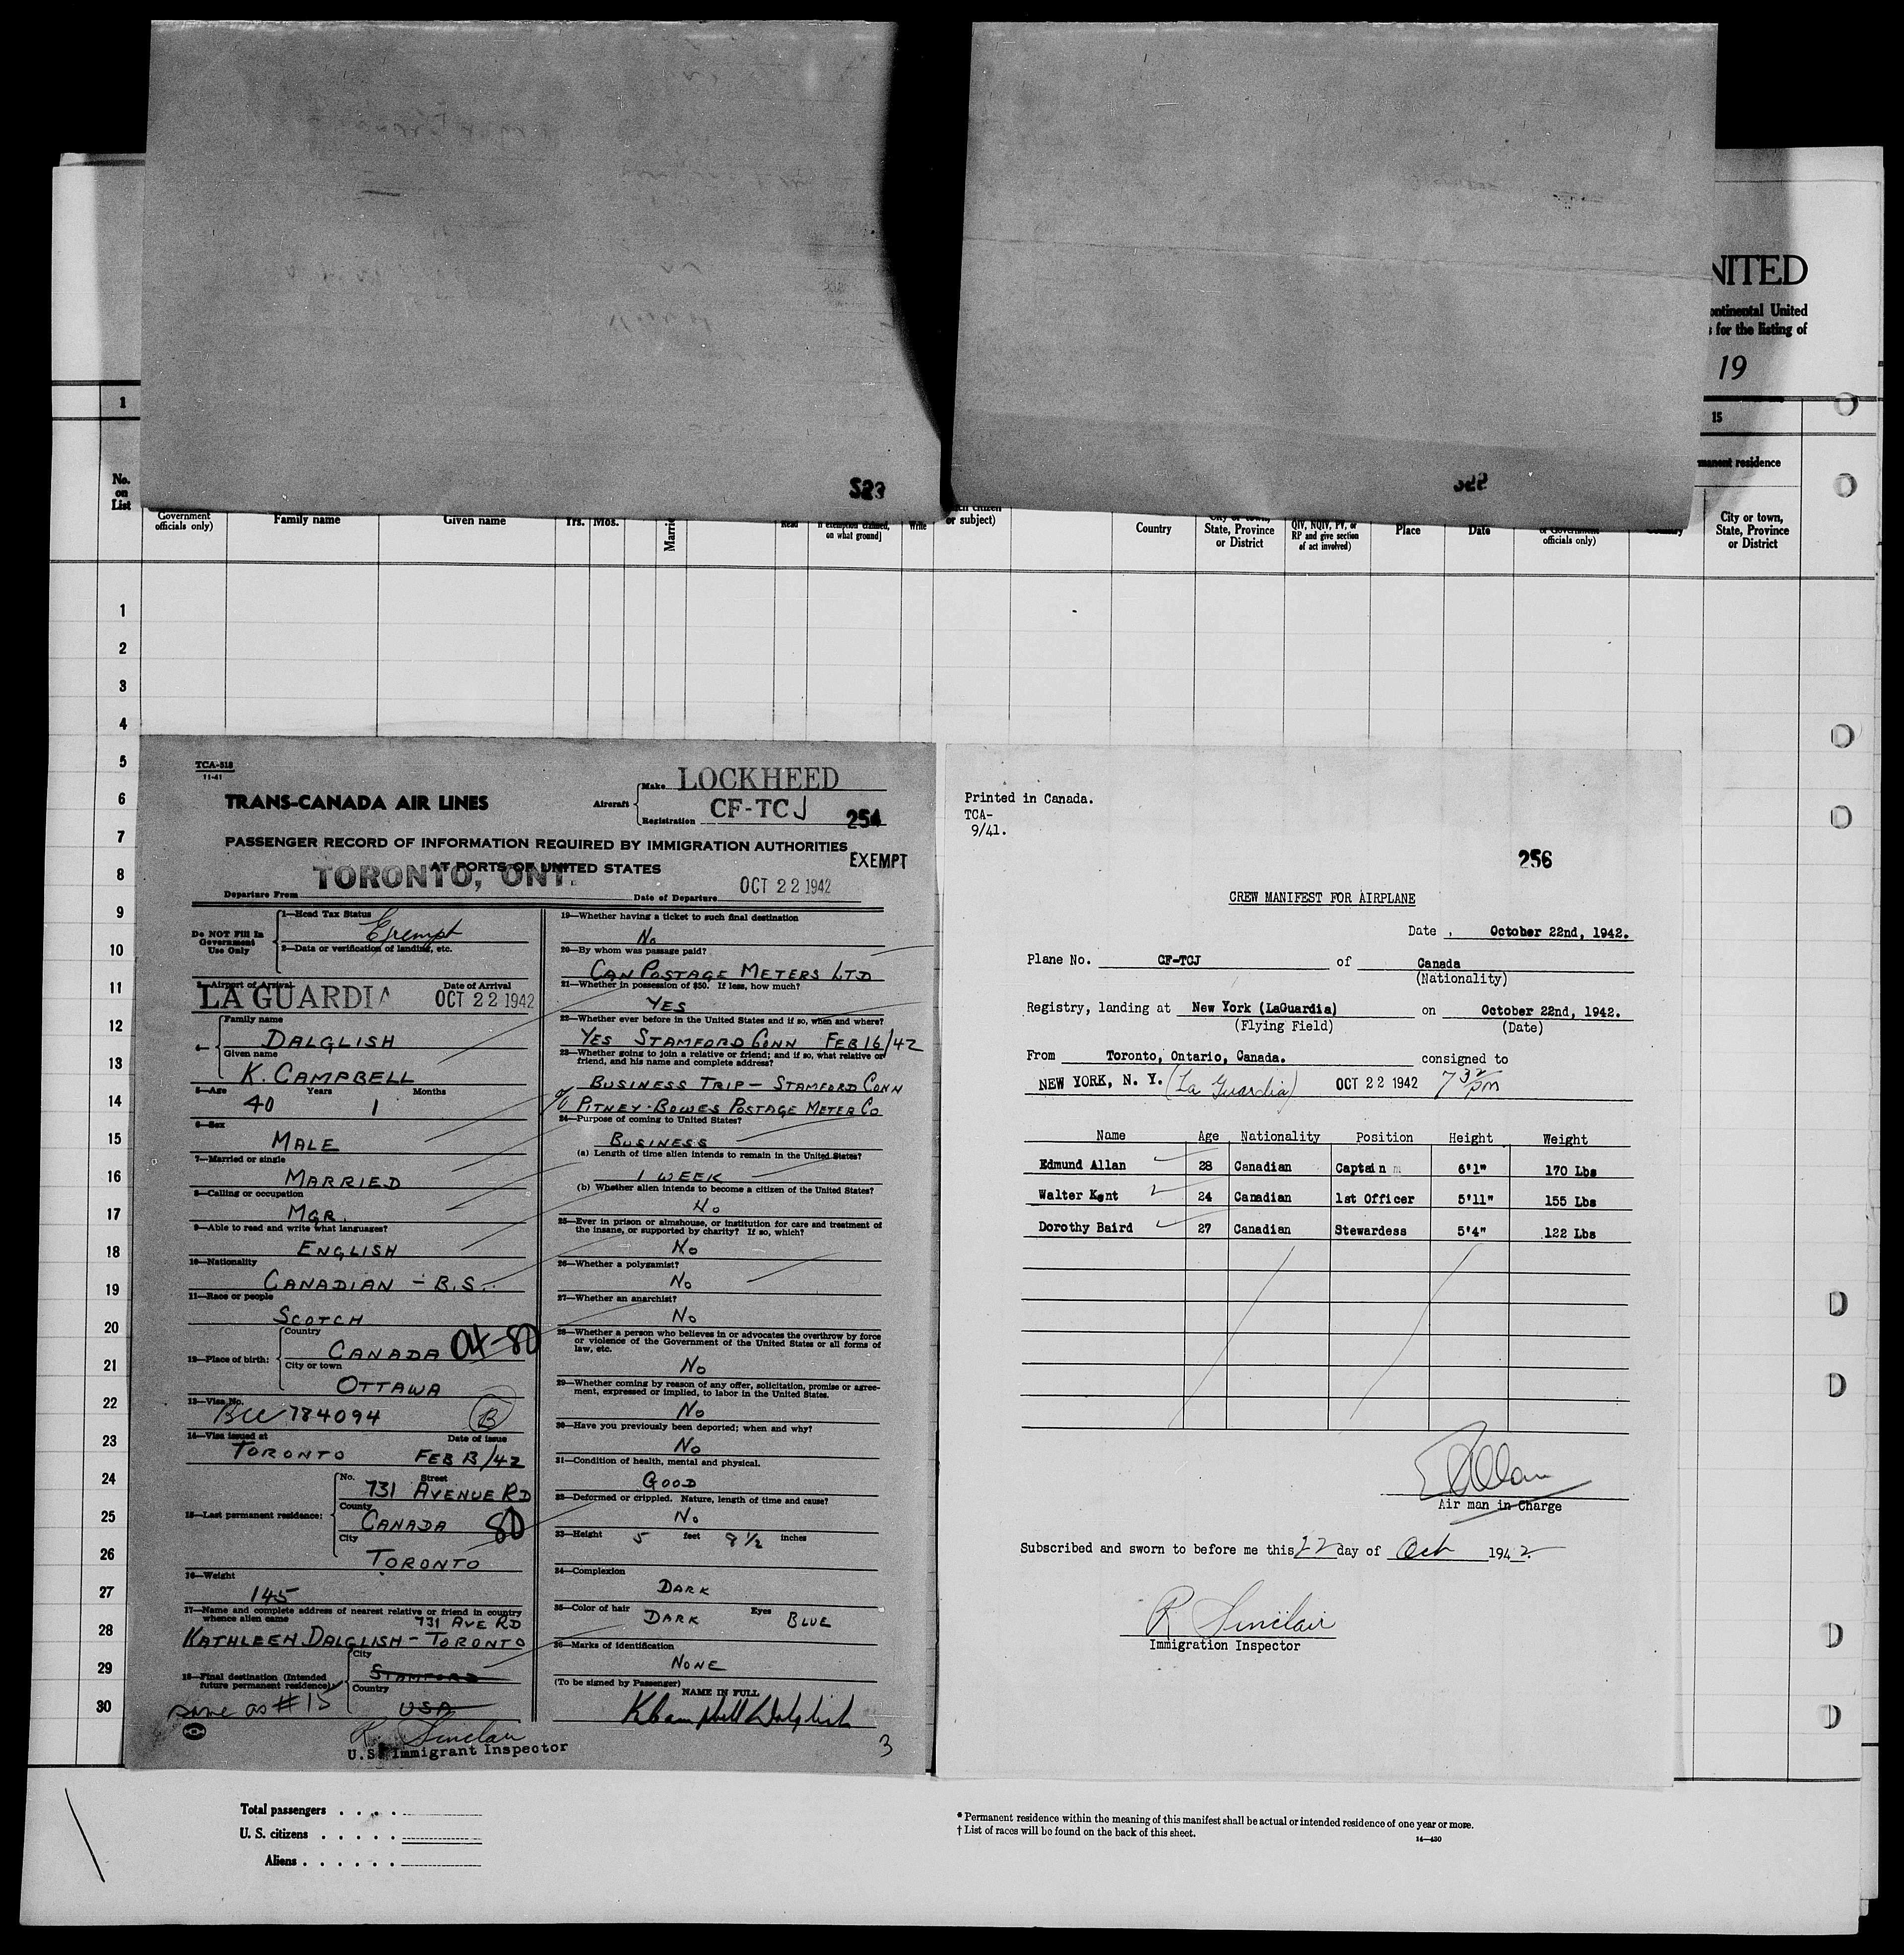 S23
S22
NITED
ontinental United
s for the listing of
19
1
15
manent residence
No.
on
List
Government
officials only)
Family name
Given name
Yrs. Mos.
Marrie
Read
if exemption claimed,
on what ground]
Write
or subject)
Country
City or town,
State, Province
or District
QIV, NQIV, PV, or
RP and give section
of act involved)
Place
Date
or Government
officials only)
Country
City or town,
State, Province
or District
1
2
3
4
5
6
7
8
9
10
11
12
13
14
15
16
17
18
19
20
21
22
23
24
25
26
27
28
29
30
TCA-518
11-41
TRANS-CANADA AIR LINES
Aircraft
Make LOCKHEED
Registration CF-TCJ
254
PASSENGER RECORD OF INFORMATION REQUIRED BY IMMIGRATION AUTHORITIES
AT PORTS OF UNITED STATES
EXEMPT
Departure From TORONTO, ONT.
Date of Departure OCT 22 1942
Do NOT Fill In
Government
Use Only
1—Head Tax Status
Exempt
2—Data or verification of landing, etc.
3—Airport of Arrival Date of Arrival
LA GUARDIA OCT 22 1942
4—
Family name
DALGLISH
Given name
K. CAMPBELL
5—Age Years Months
40 1
6—Sex
MALE
7—Married or single
MARRIED
8—Calling or occupation
MGR.
9—Able to read and write what languages?
ENGLISH
10—Nationality
CANADIAN - B.S.
11—Race or people
SCOTCH
12—Place of birth:
Country
CANADA 04-80
City or town
OTTAWA
13—Visa No.
BCC 784094 B
14—Visa issued at Date of Issue
TORONTO FEB 13/42
15—Last permanent residence:
No. Street
731 AVENUE RD
County
CANADA 80
City
TORONTO
16—Weight
145
17—Name and complete address of nearest relative or friend in country
whence alien came
731 AVE RD
KATHLEEN DALGLISH - TORONTO
18—Final destination (Intended
future permanent residence)
City
STAMFORD
Country
USA
same as #15
R. Sinclair
U.S. Immigrant Inspector
19—Whether having a ticket to such final destination
No
20—By whom was passage paid?
CAN POSTAGE METERS LTD
21—Whether in possession of $50. If less, how much?
YES
22—Whether ever before in the United States and if so, when and where?
YES STAMFORD CONN FEB 16/42
23—Whether going to join a relative or friend; and if so, what relative or
friend, and his name and complete address?
BUSINESS TRIP - STAMFORD CONN
% PITNEY-BOWES POSTAGE METER CO
24—Purpose of coming to United States?
BUSINESS
(a) Length of time alien intends to remain in the United States?
1 WEEK
(b) Whether alien intends to become a citizen of the United States?
No
25—Ever in prison or almshouse, or institution for care and treatment of
the insane, or supported by charity? If so, which?
No
26—Whether a polygamist?
No
27—Whether an anarchist?
No
28—Whether a person who believes in or advocates the overthrow by force
or violence of the Government of the United States or all forms of
law, etc.
No
29—Whether coming by reason of any offer, solicitation, promise or agree-
ment, expressed or implied, to labor in the United States.
No
30—Have you previously been deported; when and why?
No
31—Condition of health, mental and physical.
GOOD
32—Deformed or crippled. Nature, length of time and cause?
No
33—Height 5 feet 9½ inches
34—Complexion
DARK
35—Color of hair DARK Eyes BLUE
36—Marks of identification
NONE
(To be signed by Passenger)
NAME IN FULL
K Campbell Dalglish
3
Printed in Canada.
TCA-
9/41.
256
CREW MANIFEST FOR AIRPLANE
Date , October 22nd, 1942.
Plane No. CF-TCJ of Canada
(Nationality)
Registry, landing at New York (LaGuardia) on October 22nd, 1942.
(Flying Field) (Date)
From Toronto, Ontario, Canada. consigned to
NEW YORK, N. Y. (La Guardia) OCT 22 1942 7 32 pm
Name Age Nationality Position Height Weight
Edmund Allan 28 Canadian Captain 6'1" 170 Lbs
Walter Kent 24 Canadian 1st Officer 5'11" 155 Lbs
Dorothy Baird 27 Canadian Stewardess 5'4" 122 Lbs
E Allan
Air man in Charge
Subscribed and sworn to before me this 22 day of Oct 1942
R Sinclair
Immigration Inspector
Total passengers . . . .
U. S. citizens . . . . .
Aliens . . . . . .
* Permanent residence within the meaning of this manifest shall be actual or intended residence of one year or more.
† List of races will be found on the back of this sheet.
14—430